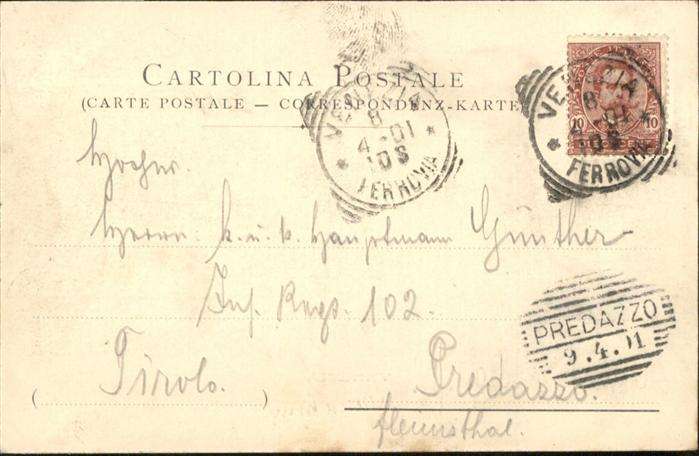 CARTOLINA POSTALE
(CARTE POSTALE — CORRESPONDENZ-KARTE
VENEZIA
8
4-01
10 S
* FERROVIA *
VENEZIA
8
4-01
10 S
* FERROVIA *
10 10
Hochgeb.
Herrn k. u. k. Hauptmann Günther
Inf. Regt. 102.
PREDAZZO
9.4.01
Tirolo.
( )
Predazzo.